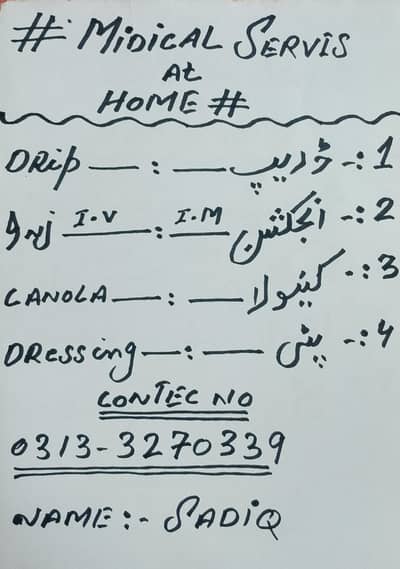 # MIDICAL SERVIS
At
HOME #
DRip — : — ڈریپ -: 1
Inj I.V : I.M انجکشن -: 2
CANOLA — : — کینولا -: 3
DRessing — : — پٹی -: 4
CONTEC NO
0313-3270339
NAME :- SADIQ